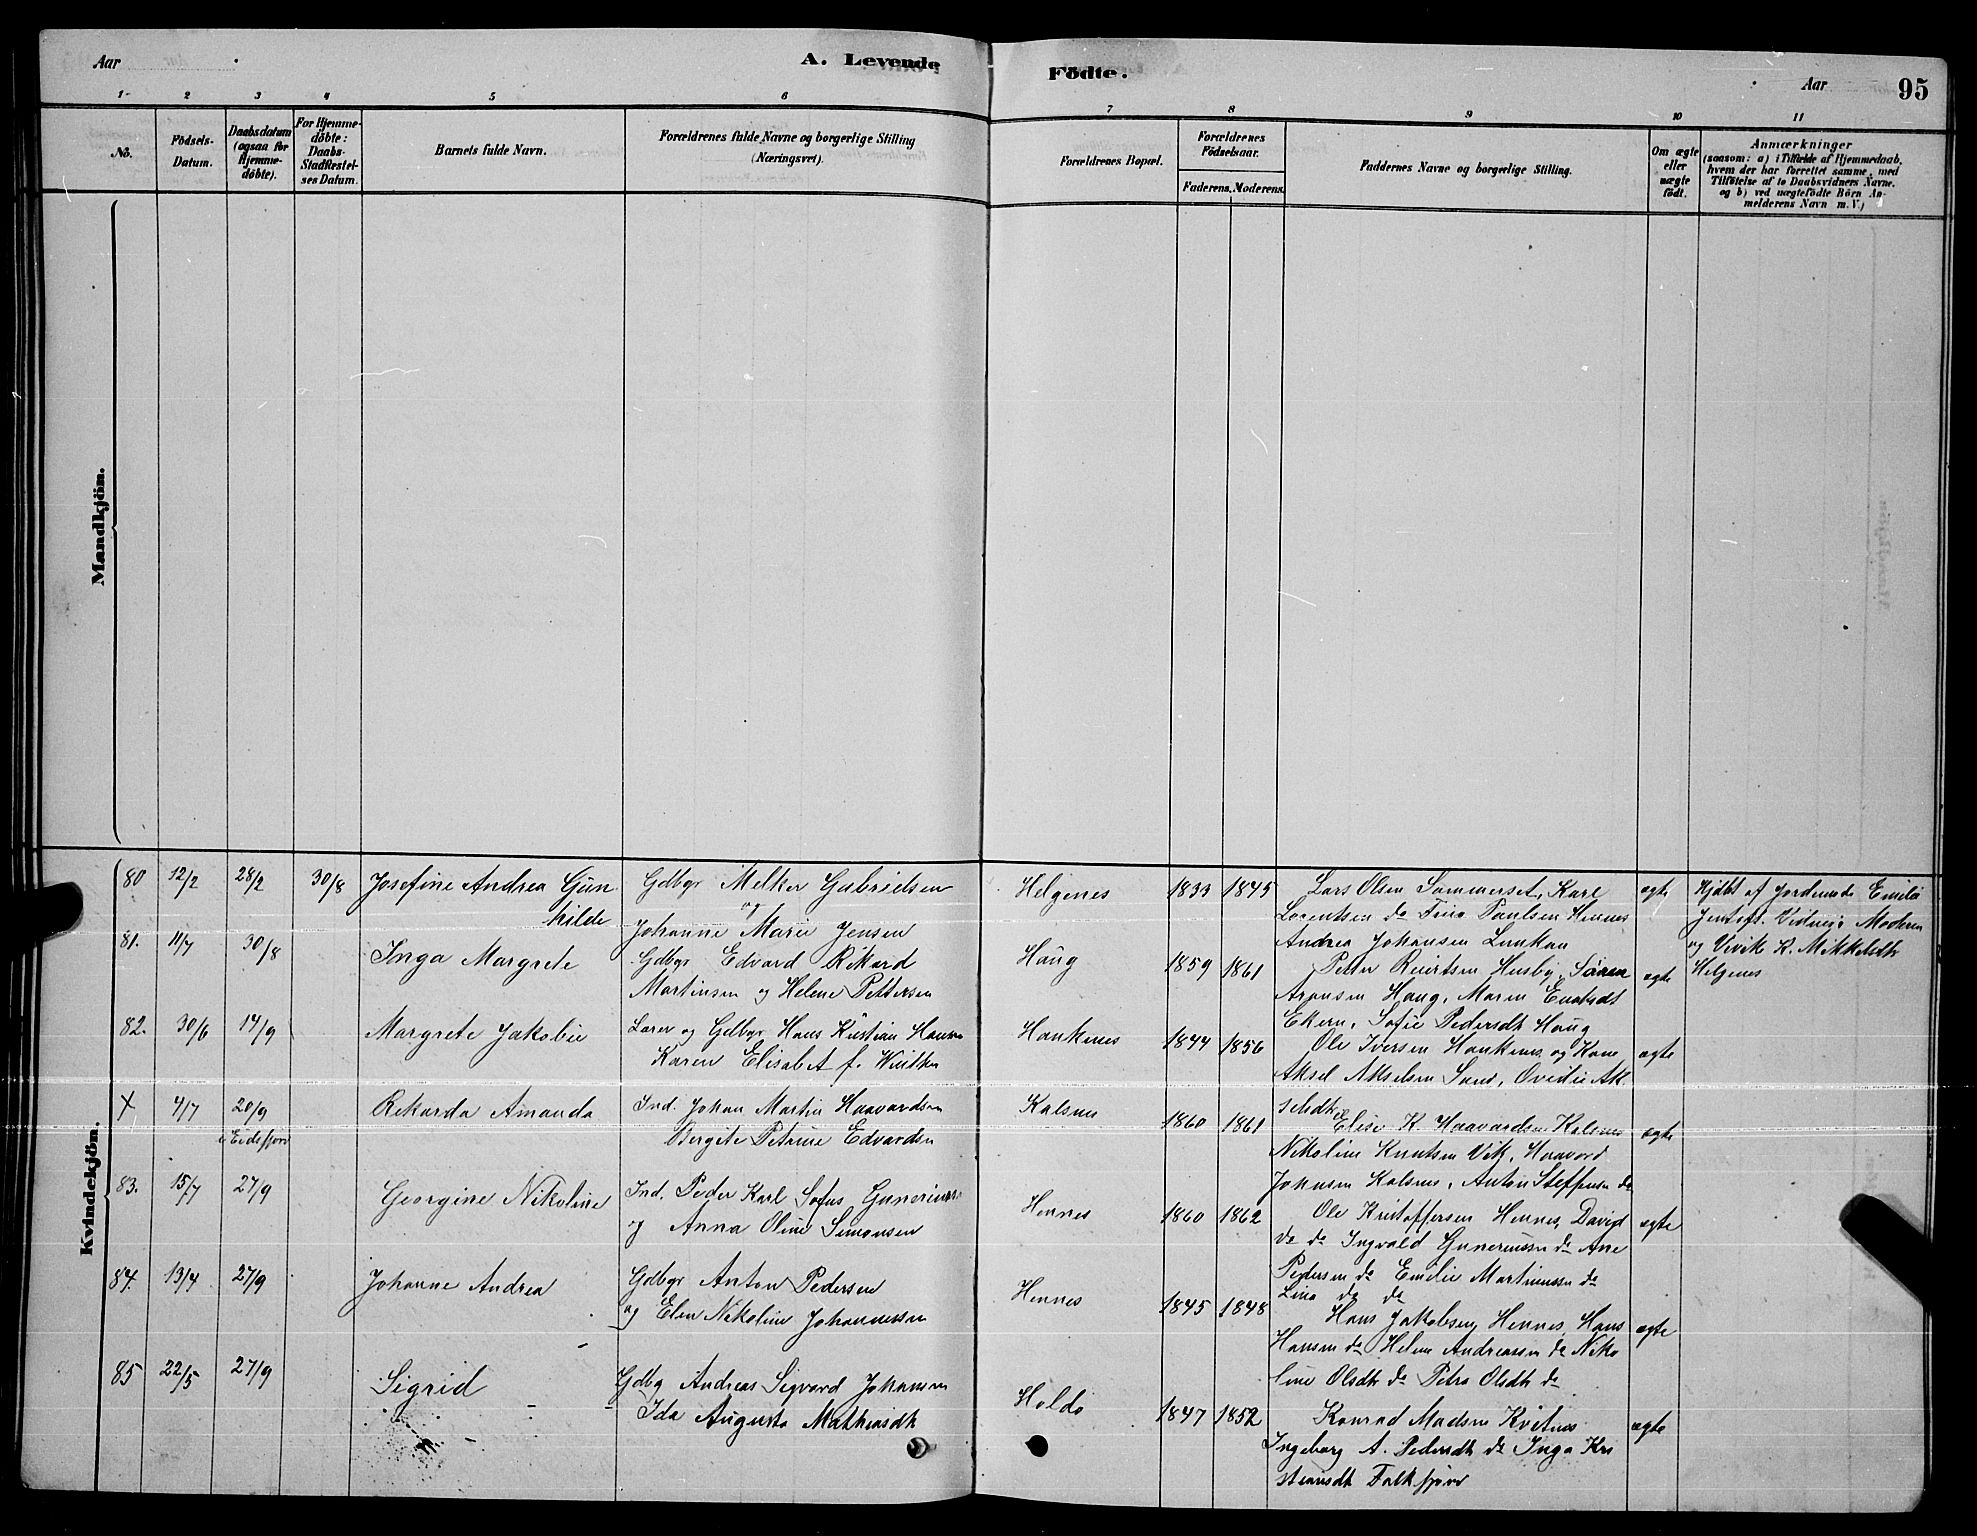 Aar
A. Levende
Födte.
Aar
95
1
2
3
4
5
6
7
8
9
10
11
No.
Födsels-
Datum.
Daabsdatum
(ogsaa for
Hjemme-
döbte).
For Hjemme-
döbte:
Daabs-
Stadfestel-
ses Datum.
Barnets fulde Navn.
Forældrenes fulde Navne og borgerlige Stilling
(Næringsvei).
Forældrenes Bopæl.
Forældrenes
Födselsaar.
Faderens.
Moderens.
Faddernes Navne og borgerlige Stilling.
Om ægte
eller
uægte
födt.
Anmærkninger
(saasom: a) i Tilfælde af Hjemmedaab,
hvem der har forrettet samme, med
Tilföielse af to Daabsvidners Navne,
og b) ved uægtefödte Börn An-
melderens Navn m. V.)
Mandkjön.
Kvindekjön.
80 12/2 28/2 30/8 Josefine Andrea Gun
hilde
Gdbgr Melker Gabrielsen
og
Johanne Marie Jensen
Helgenes 1833 1845
Lars Olsen Sommerset, Karl
Lorentsen do Trina Paulsen Hennes
Andrea Johansen Lunkan
ægte
Hjdbt af Jordemode Emilie
Jentoft. Vidner: Moderen
og Vivik K. Mikkelsdtr
Helgenes
81. 11/7 30/8 Inga Margrete
Gdbgr Edvard Rikard
Martinsen og Helene Pettersen
Haug 1859 1861
Peder Reiertsen Husby, Sören
Aronsen Haug, Maren
Ekern, Sofie Pedersdtr Haug
ægte
82. 30/6 14/9 Margrete Jakobie
Lærer og Gdbgr Hans Kristian Hansen
Karen Elisabet f. Winther
Haukenes 1844 1856
Ole Iversen Haukenes og Kone
Aksel Akselsen Sand, Ovidie Ak
selsdtr
ægte
X 4/7 20/9 Rikarda Amanda
i Eidsfjord
Ind. Johan Martin Haavardsen
Bergite Petrine Edvardsen
Kalsnes 1860 1861
Elise K. Haavardsen Kalsnes
Nikoline Knutsen Vik, Haavard
Johnsen Kalsnes, Anton Steffensen do
ægte
83. 15/7 27/9 Georgine Nikoline
Ind. Peder Karl Sofus Guneriussen
og Anna Oline Simonsen
Hennes 1860 1862
Ole Kristoffersen Hennes, David
do do Ingvald Guneriussen do Ane
Pedersen do Emilie Martinussen do
Lina do do
ægte
84. 13/4 27/9 Johanne Andrea
Gdbgr Anton Pedersen
og Elen Nikoline Johannessen
Hennes 1845 1848
Hans Jakobsen Hennes, Hans
Hansen do Helene Andreassen do Niko
line Olsdtr do Petra Olsdtr do
ægte
85 22/5 27/9 Sigrid
Gdbg Andreas Sigvard Johansen
Ida Augusta Mathiasdtr
Holdo 1847 1852
Konrad Madsen Kvitnes
Ingeborg A. Pedersdtr do Inga Kri
stiansdtr Falkfjord
ægte